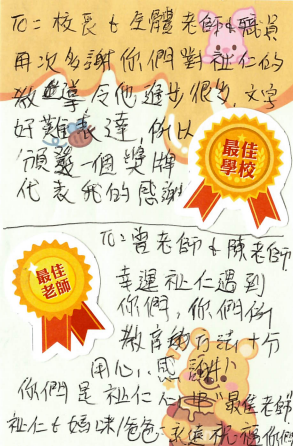 To: 校長 & 全體老師 & 職員
再次多謝你們對祉仁的
教導, 令他進步很多, 文字
好難表達, 所以
頒發一個獎牌
代表我的感謝
最佳
學校
To: 曾老師 & 陳老師
幸運祉仁遇到
你們, 你們的
教育的方法十分
用心, 感謝!
你們是祉仁心中"最佳老師"
最佳
老師
祉仁
媽咪/爸爸